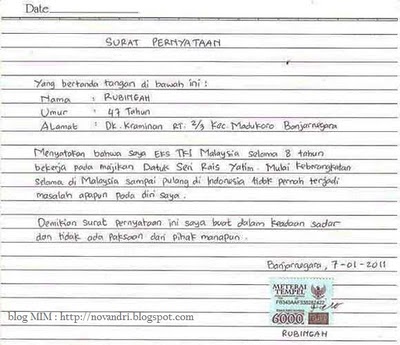 Date
SURAT PERNYATAAN
Yang bertanda tangan di bawah ini :
Nama : RUBINGAH
Umur : 47 Tahun
ALamat : Dk. Kraminan RT. 2/3 Kec. Madukoro Banjarnegara
Menyatakan bahwa saya EKS TKI Malaysia selama 8 tahun
bekerja pada majikan Datuk Seri Rais Yatim. Mulai Keberangkatan
selama di Malaysia sampai pulang di Indonesia tidak pernah terjadi
masalah apapun pada diri saya.
Demikian surat pernyataan ini saya buat dalam keadaan sadar
dan tidak ada paksaan dari pihak manapun.
Banjarnegara, 7-01-2011
METERAI
TEMPEL
6000
RUBINGAH
blog MIM : http://novandri.blogspot.com